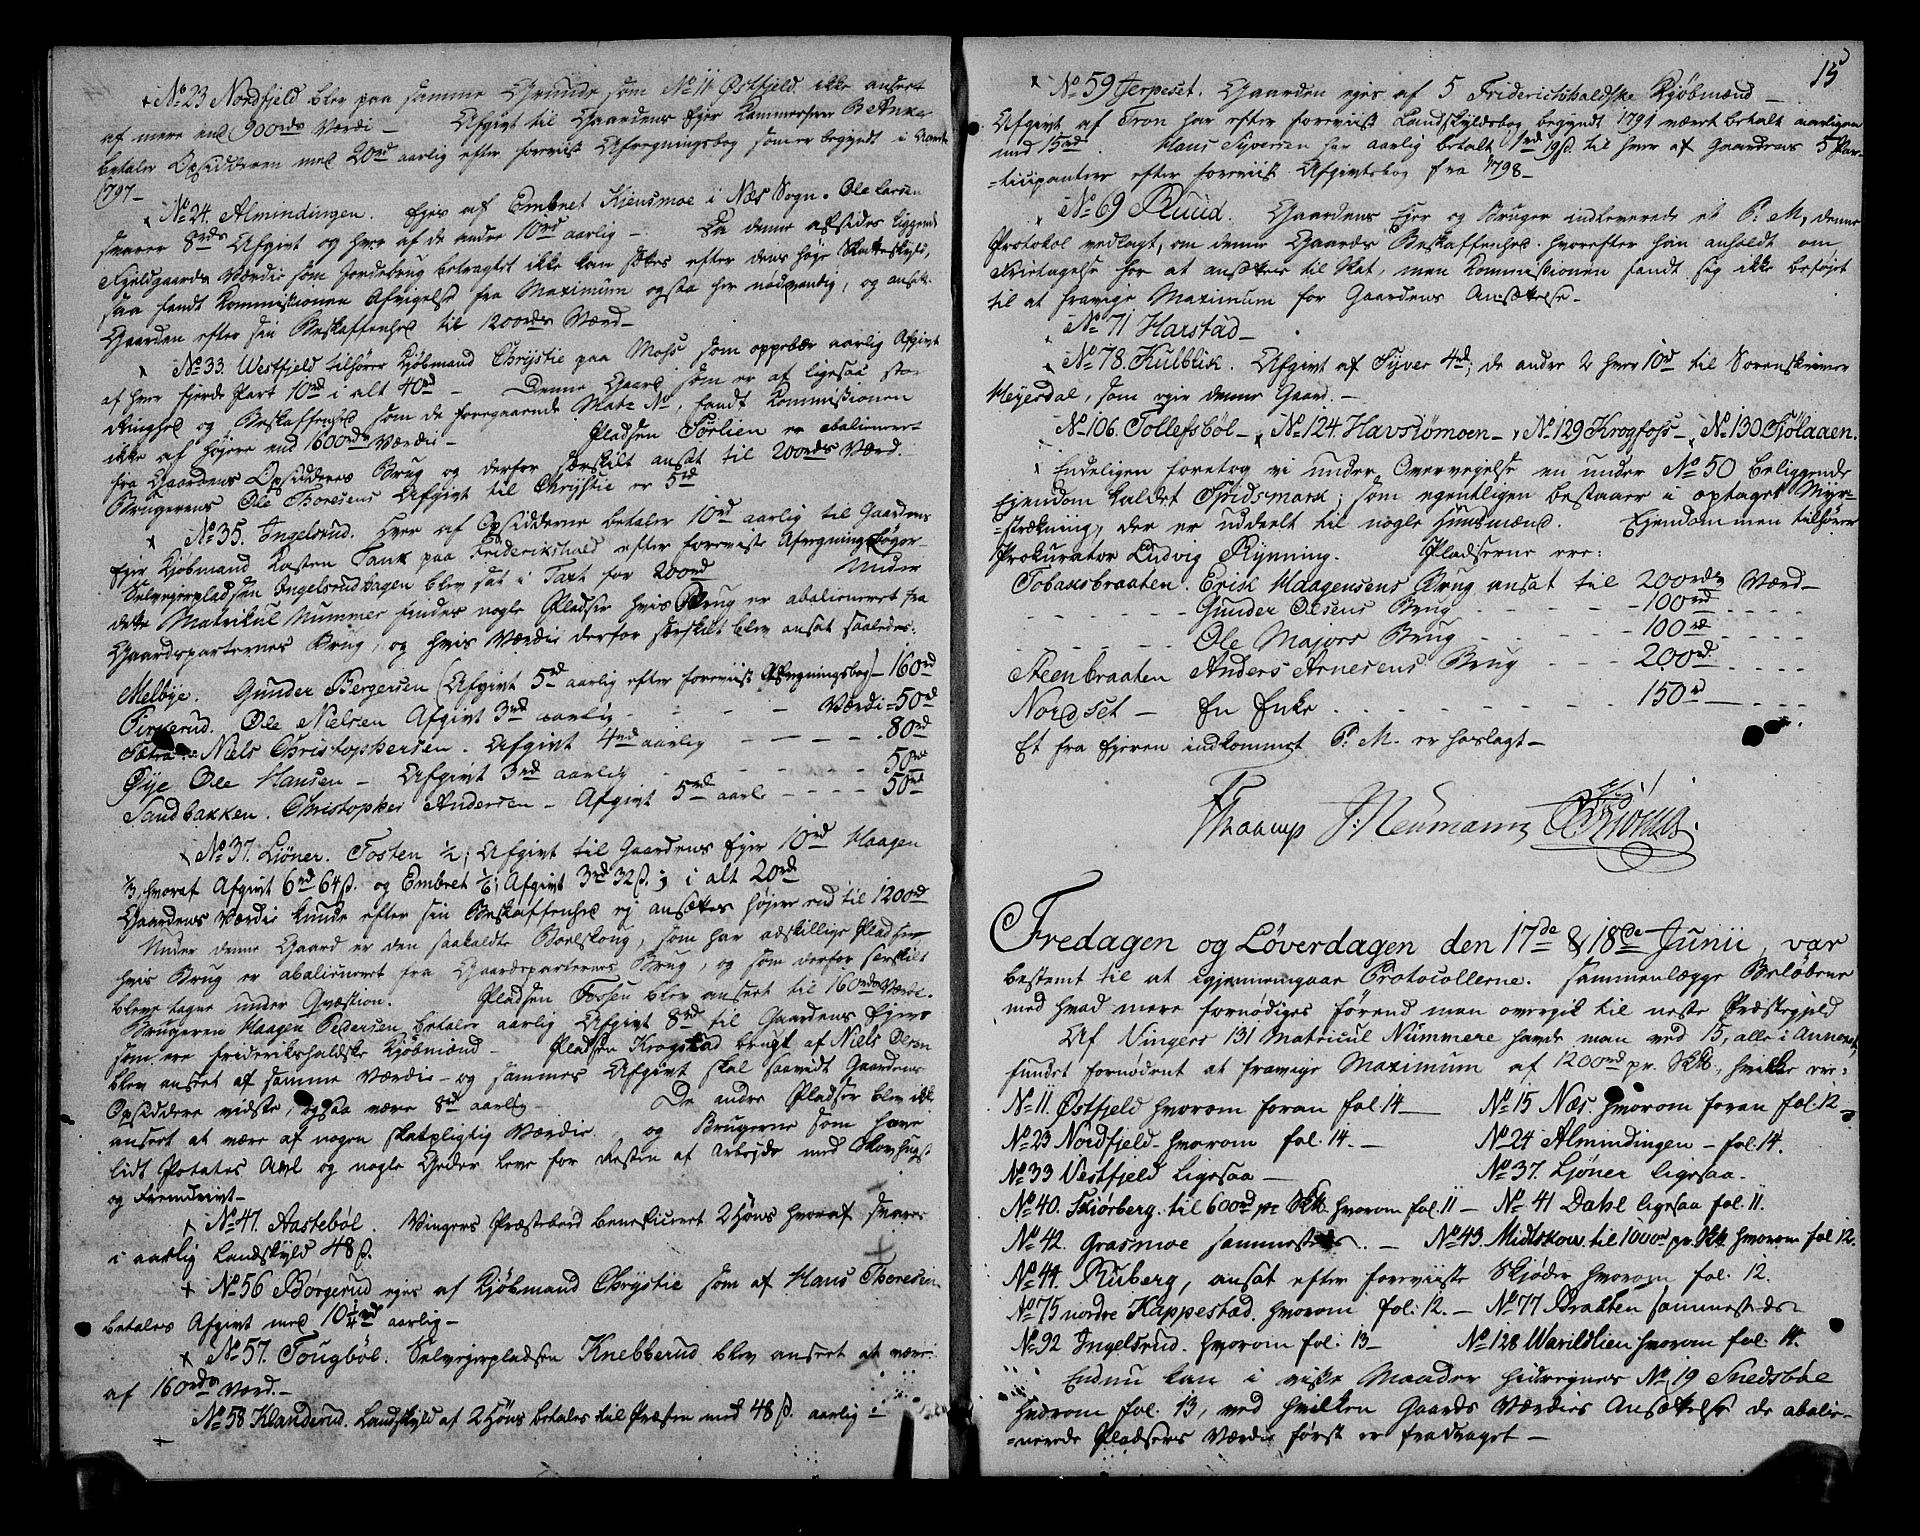 No 23 Nordfjeld blev paa samme Grunde som No 11 Østfjeld ikke anseet
af mere end 900rds Værdi — Afgivt til Gaardens Ejer Kammerherr B Anker
betaler Opsidderen med 20rd aarlig efter foreviist Afregningsbog som er begyndt i
1797 —
No 24. Almindingen. Ejes af Embret Kiensmoe i Næs Sogn. Ole Larsen
svarer 8rds Afgivt og hver af de andre 10rd aarlig — Da denne afsides liggende
Fjeldgaards Værdie som Jordebrug betragtet ikke kan sættes efter dens høje Skatteskyld,
saa fandt Kommissionen Afvigelse fra Maximum ogsaa her nødvendig, og ansatte
Gaarden efter sin Beskaffenhed til 1200rds Værd —
No 33. Westfjeld tilhører Kjøbmand Chrystie paa Moss som oppebær aarlig Afgivt
af hver fjerde Part 10rd i alt 40rd — Denne Gaard som er af ligesaa stor
Ringhed og Beskaffenhed som de foregaaende Matr. No, fandt Kommissionen
ikke af højere end 1600rds Værdie — Pladsen Sørlien er abalieneret
fra Gaardens Opsidderes Brug og derfor særskilt ansat til 200rds Værd.
Brugerens Ole Thoresens Afgivt til Chrystie er 5rd
No 35. Ingelsrud. Hver af Opsidderne betaler 10rd aarlig til Gaardens
Ejer Kjøbmand Carsten Tank paa Friderikshald efter foreviste Afregningsbøger —
Selvejerpladsen Ingelsrudhagen blev sat i Taxt for 200rd Under
dette Matrikul Nummer findes nogle Pladser hvis Brug er abalieneret fra
Gaardsparternes Brug, og hvis Værdie derfor særskilt blev ansat saaledes:
Melbye. Gunder Bergersen (Afgivt 5rd aarlig efter foreviist Afregningsbog) — 160rd
Ole Nielsen Afgivt 3rd aarlig - - - Værdi = 50rd
Niels Christophersen. Afgivt 4rd aarlig — — — 80rd
Øye Ole Hansen — Afgivt 3rd aarlig - - - - 50rd
Sandbakken. Christopher Andersen — Afgivt 5rd aarl: - - - - 50rd
No 37. Liöner. Tosten ½; Afgivt til Gaardens Ejer 10rd Haagen
⅓, hvoraf Afgivt 6rd 64ß. og Embret ⅙, Afgivt 3rd 32ß.; i alt 20rd
Gaardens Værdie kunde efter sin Beskaffenhed ej ansættes højere end til 1200rd
Under denne Gaard er den saakaldte Borlskoug, som har adskillige Pladser
hvis Brug er abalieneret fra Gaardsparternes Brug, og som derfor særskilt
bleve tagne under Qvæstion. Pladsen Fossen blev anseet til 160rds Værdi.
Brugeren Haagen Pedersen betaler aarlig Afgivt 8rd til Gaardens Ejere
som ere friderikshaldske Kjøbmænd — Pladsen Krogstad brugt af Niels Olsen
blev anseet af samme Værdie — og sammes Afgivt skal saavidt Gaardens
Opsiddere vidste, ogsaa være 8rd aarlig — De andre Pladser blev ikke
anseet at være af nogen skatpligtig Værdie, og Brugerne som have
lidt Potates Avl og nogle Geder leve for Resten af Arbejde med Skovhugst
og Fremdrivt —
No 47. Aastebøl. Vingers Præstebord beneficeret 2 Høns hvoraf svares
i aarlig Landskyld 48ß.
No 56 Börgerud ejes af Kjøbmand Chrystie som af Hans Thoresen
betales Afgivt med 10¼rd aarlig —
No 57. Tougböl. Selvejerpladsen Knebberud blev anseet at være
af 160rds Værd. —
No 58 Klanderud. Landskyld af 2 Høns betales til Præsten med 48ß. aarlig —
15
No 59 Jerpeset. Gaarden ejes af 5 Friderichshaldske Kjøbmænd —
Afgivt af Tron har efter foreviist Landskyldsbog begyndt 1791 været betalt aarligen
med 15rd. Hans Syversen har aarlig betalt 1rd 19ß. til hver af Gaardens 5 Par-
-ticipantere efter foreviist Afgivtsbog fra 1798 —
No 69 Ruud. Gaardens Ejer og Bruger indleverede et P. M, denne
Protokol vedlagt, om denne Gaards Beskaffenhed. hvorefter han anholdt om
Fritagelse for at ansættes til Skat, men Kommissionen fandt sig ikke beføjet
til at fravige Maximum for Gaardens Ansættelse —
No 71 Harstad —
No 78. Kulblik. Afgivt af Syver 4rd; de andre 2 hver 10rd til Sorenskriver
Meyerdal, som ejer denne Gaard. —
No 106. Tollefsböl — No 124. Havsiömoen — No 129 Krogfoss — No 130 Fiölaaen.
Endeligen foretog vi under Overvejelse en under No 50 beliggende
Ejendom kaldet Spidsmark; som egentligen bestaaer i optaget Myr-
-strækning, der er uddeelt til nogle Huusmænd. Ejendommen tilhører
Prokurator Ludvig Rynning. Pladserne ere:
Tobaksbraaten. Erik Haagensens Brug ansat til 200rds Værd —
- - - Gunder Olsens Brug - - - - 100rd - - -
- - - Ole Majors Brug - - - - 100rd - - -
Steenbraaten Anders Arnesens Brug - - - 200rd. - - -
Nordset — En Enke - - - - - 150rd - - -
Et fra Ejeren indkommet P. M. er hoslagt —
Thaarup J: Neumann
Fredagen og Løverdagen den 17de & 18de Junii, var
bestemt til at igjennemgaae Protocollerne. sammenlægge Beløbene
med hvad mere fornødiges førend man overgik til neste Præstegjeld
Af Vingers 131 Matricul Nummere havde man ved 15, alle i Annexet,
fundet fornødent at fravige Maximum af 1200rd pr. Skt., hvilke ere:
No 11. Østfjeld hvorom foran fol. 14 — No 15 Næs. hvorom foran fol. 12 —
No 23 Nordfjeld hvorom fol. 14. — No 24 Almindingen — fol. 14.
No 33 Vestfjeld ligesaa — No 37. Ljöner ligesaa.
No 40. Skiörberg. til 600rd pr Skt. hvorom fol. 11 — No 41 Dahl ligesaa fol. 11.
No 42. Grasmoe sammesteds. — No 43. Midtskov til 1000rd pr. Skt. hvorom fol 12.
No 44. Ruberg, ansat efter foreviiste Skjøder hvorom fol. 12.
No 75 nordre Kappestad. hvorom fol. 12. — No 77 Braaten sammesteds —
No 92 Ingelsrud. hvorom fol: 13 — No 128 Varildlien hvorom fol. 14.
Endnu kan i visse Maader hidregnes No 19 Snedsböl
hvorom fol. 13, ved hvilken Gaards Værdies Ansættelse de abalie-
-nerede Pladsers Værdie først er fradraget —